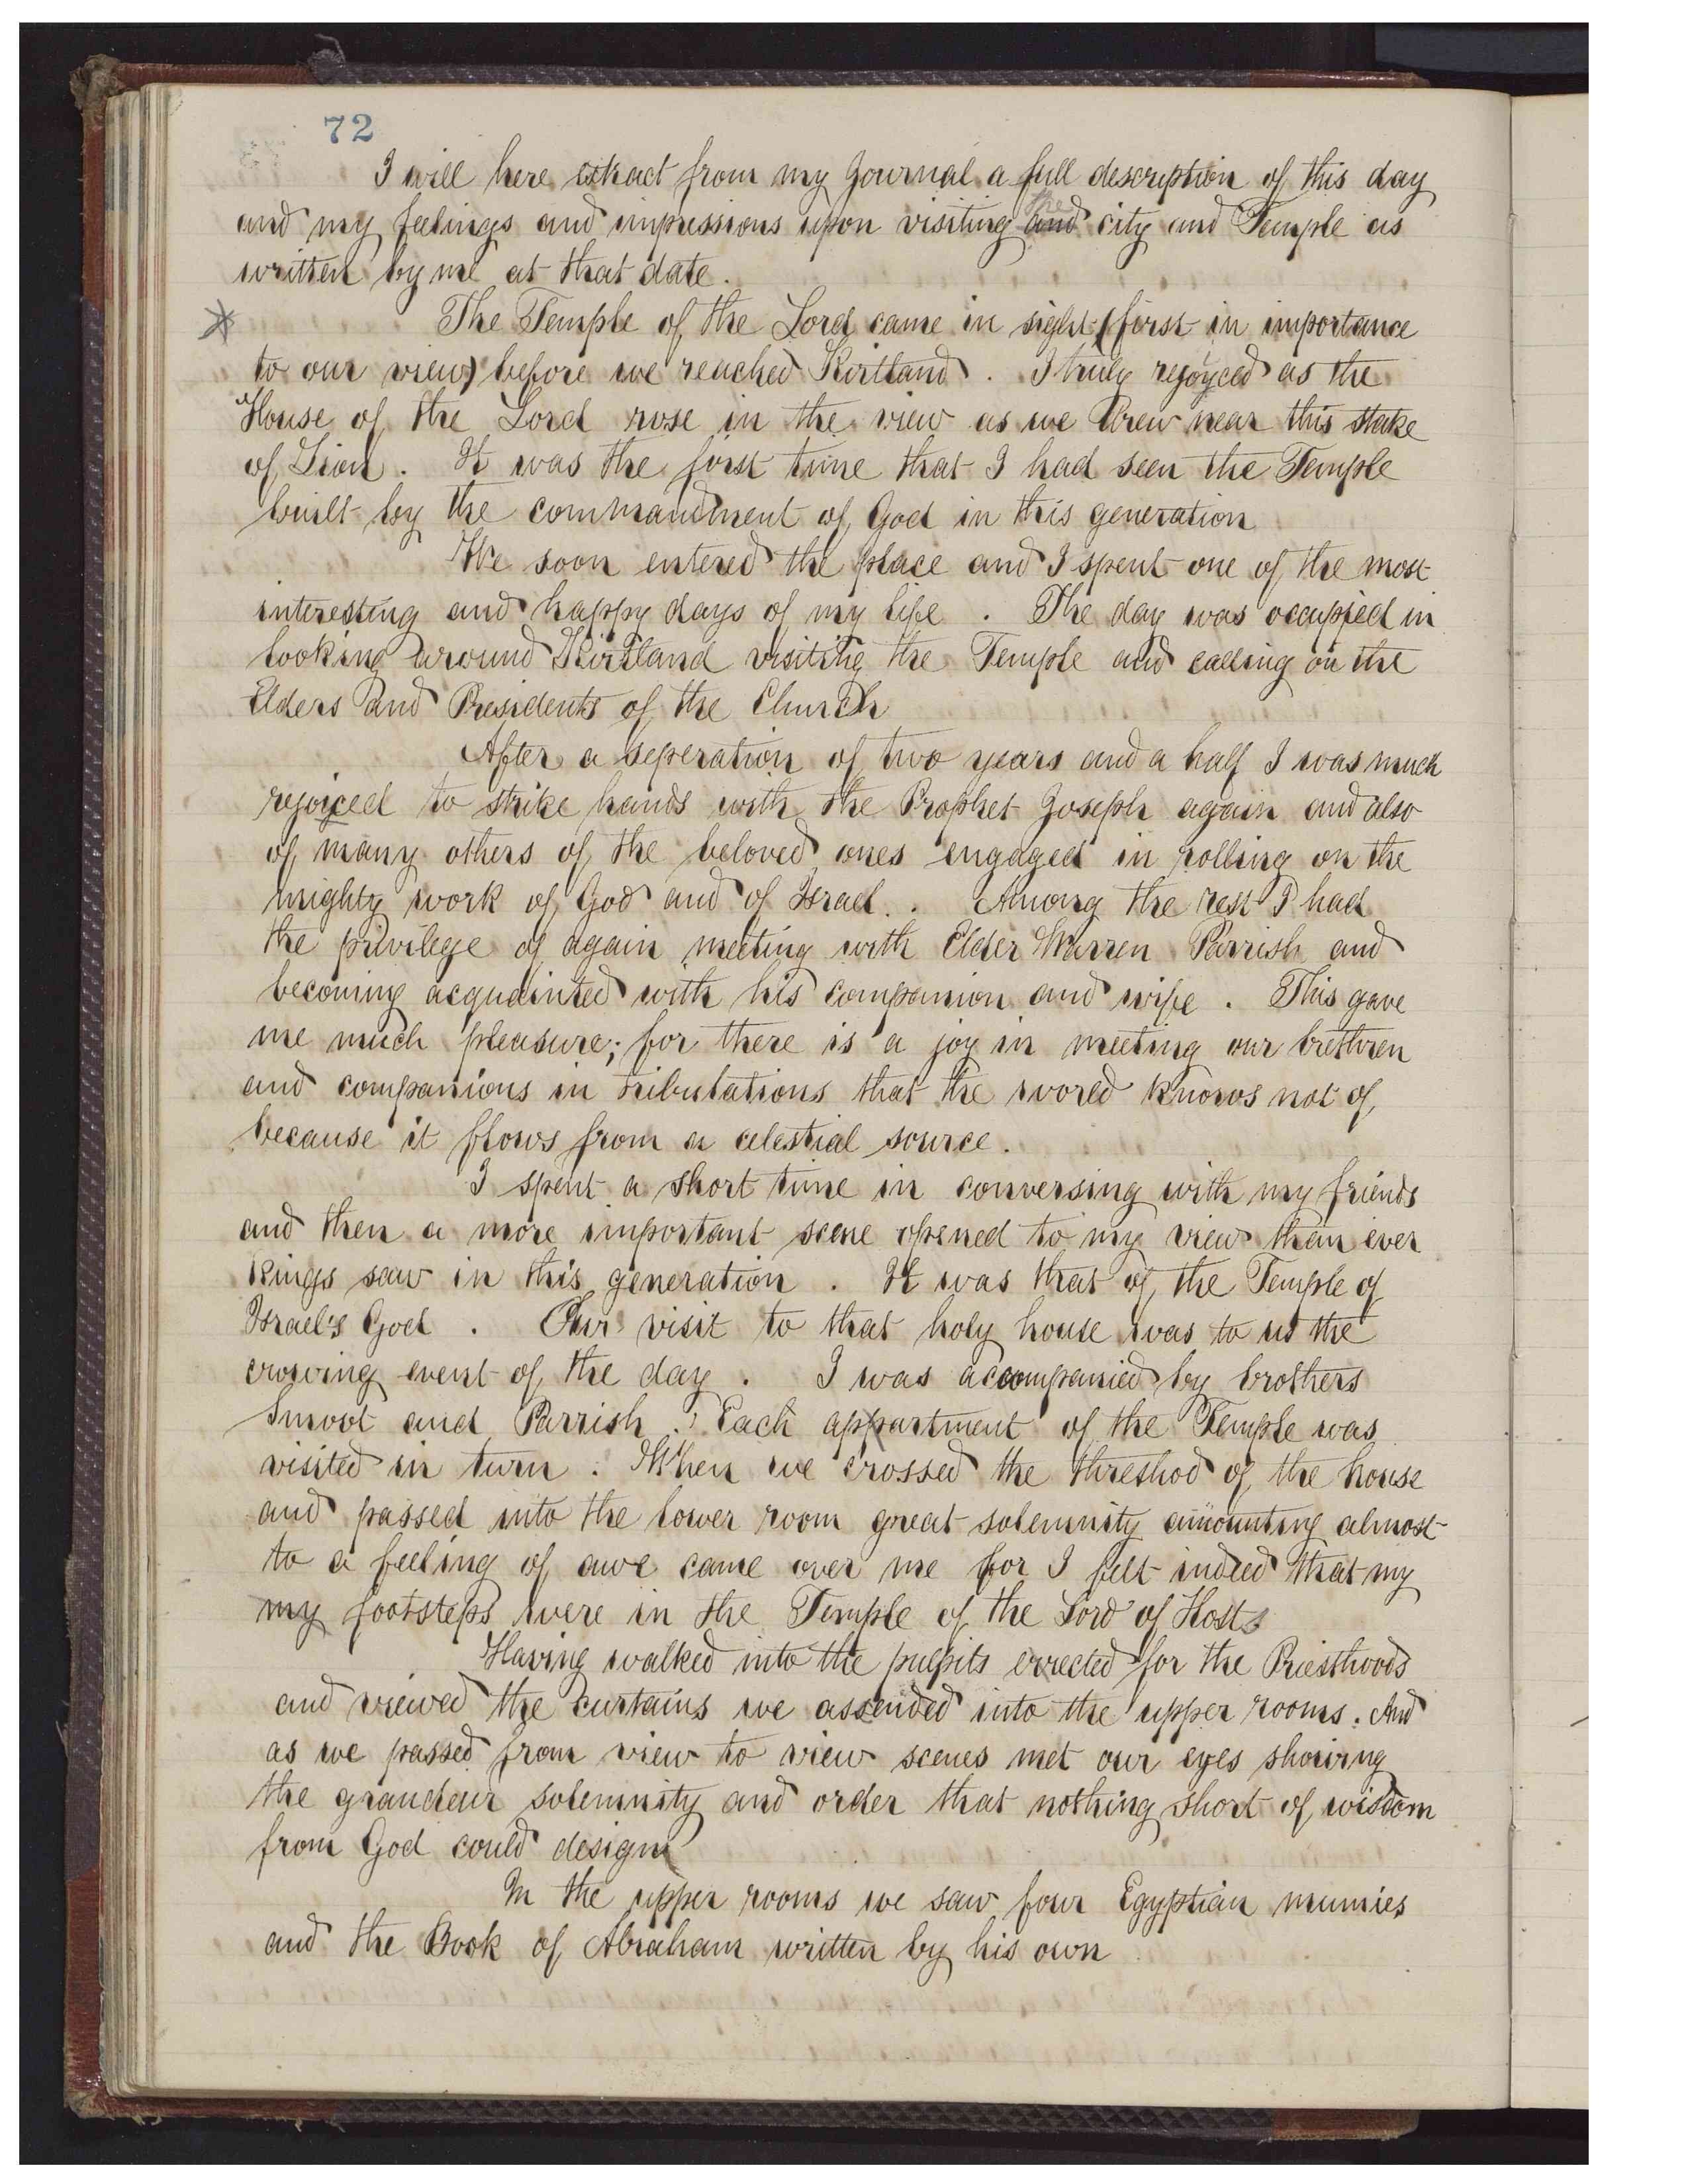 72
I will here extract from my Journal a full description of this day
and my feelings and impressions upon visiting the and city and Temple as
written by me at that date.
* The Temple of the Lord came in sight (first in importance
to our view) before we reached Kirtland. I truly rejoyced as the
House of the Lord rose in the view as we drew near this stake
of Zion. It was the first time that I had seen the Temple
built by the commandment of God in this generation
We soon entered the place and I spent one of the most
interesting and happy days of my life. The day was occupied in
looking around Kirtland visiting the Temple and calling on the
Elders and Presidents of the Church
After a seperation of two years and a half I was much
rejoiced to strike hands with the Prophet Joseph again and also
of many others of the beloved ones engaged in rolling on the
mighty work of God and of Israel. Among the rest I had
the privilege of again meeting with Elder Warren Parrish and
becoming acquainted with his companion and wife. This gave
me much pleasure; for there is a joy in meeting our brethren
and companions in tribulations that the world knows not of,
because it flows from a celestial source.
I spent a short time in conversing with my friends
and then a more important scene opened to my view than ever
Kings saw in this generation. It was that of the Temple of
Israel's God. Our visit to that holy house was to us the
crowing event of the day. I was accompanied by brothers
Smoot and Parrish. Each appartment of the Temple was
visited in turn. When we crossed the threshod of the house
and passed into the lower room great solemnity amounting almost
to a feeling of awe came over me for I felt indeed that my
my footsteps were in the Temple of the Lord of Hosts
Having walked into the pulpits errected for the Priesthoods
and viewed the curtains we assended into the upper rooms. And
as we passed from view to view scenes met our eyes showing
the grandeur solemnity and order that nothing short of wisdom
from God could design
In the upper rooms we saw four Egyptian mumies
and the Book of Abraham written by his own